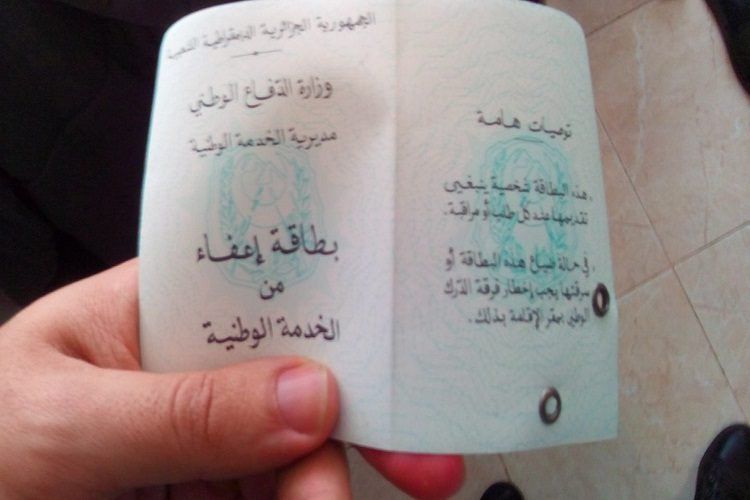 الجمهورية الجزائرية الديمقراطية الشعبية
وزارة الدّفاع الوطني
مديرية الخدمة الوطنية
بطاقة إعفاء
من
الخدمة الوطنية
توصيات هامة
. هذه البطاقة شخصية ينبغي
تقديمها عند كل طلب أو مراقبة.
. في حالة ضياع هذه البطاقة أو
سرقتها يجب إخطار فرقة الدّرك
الوطني بمقر الإقامة بذلك.